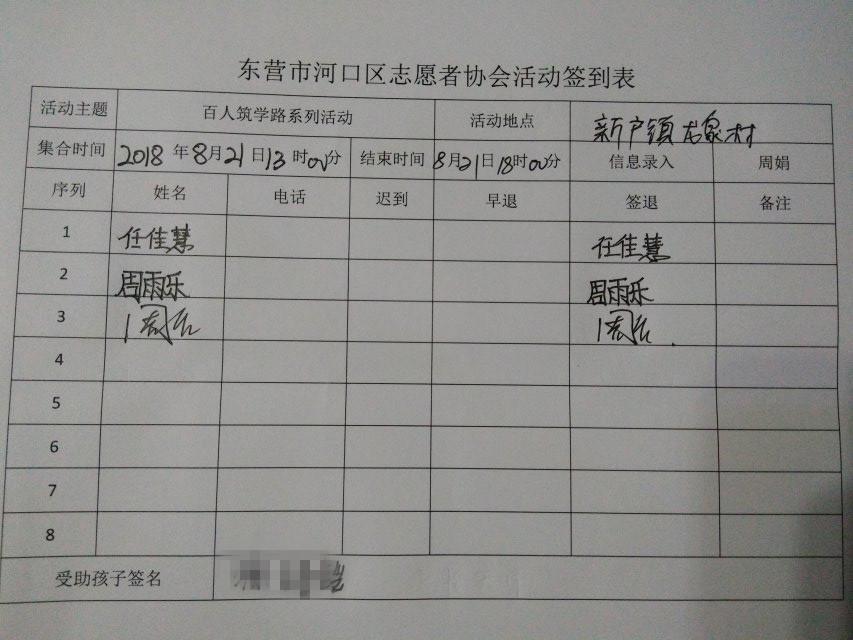 东营市河口区志愿者协会活动签到表
活动主题 百人筑学路系列活动 活动地点 新户镇 村
集合时间 2018年8月21日13时00分 结束时间 8月21日18时00分 信息录入 周娟
序列 姓名 电话 迟到 早退 签退 备注
1 任佳慧 任佳慧
2 周雨乐 周雨乐
3
4
5
6
7
8
受助孩子签名